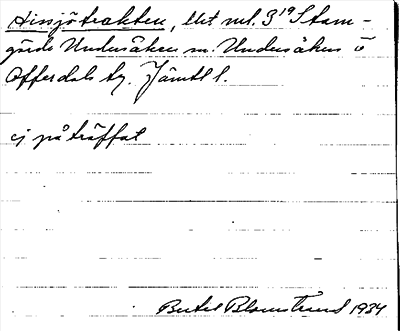 Hinsjötrakten, Utt nr. 3¹⁹ Stam-
gärde Undersåkers sn. Undersåkers o
Offerdals tg. Jämtl l.
ej påträffat
Bertil Blomstrand 1934